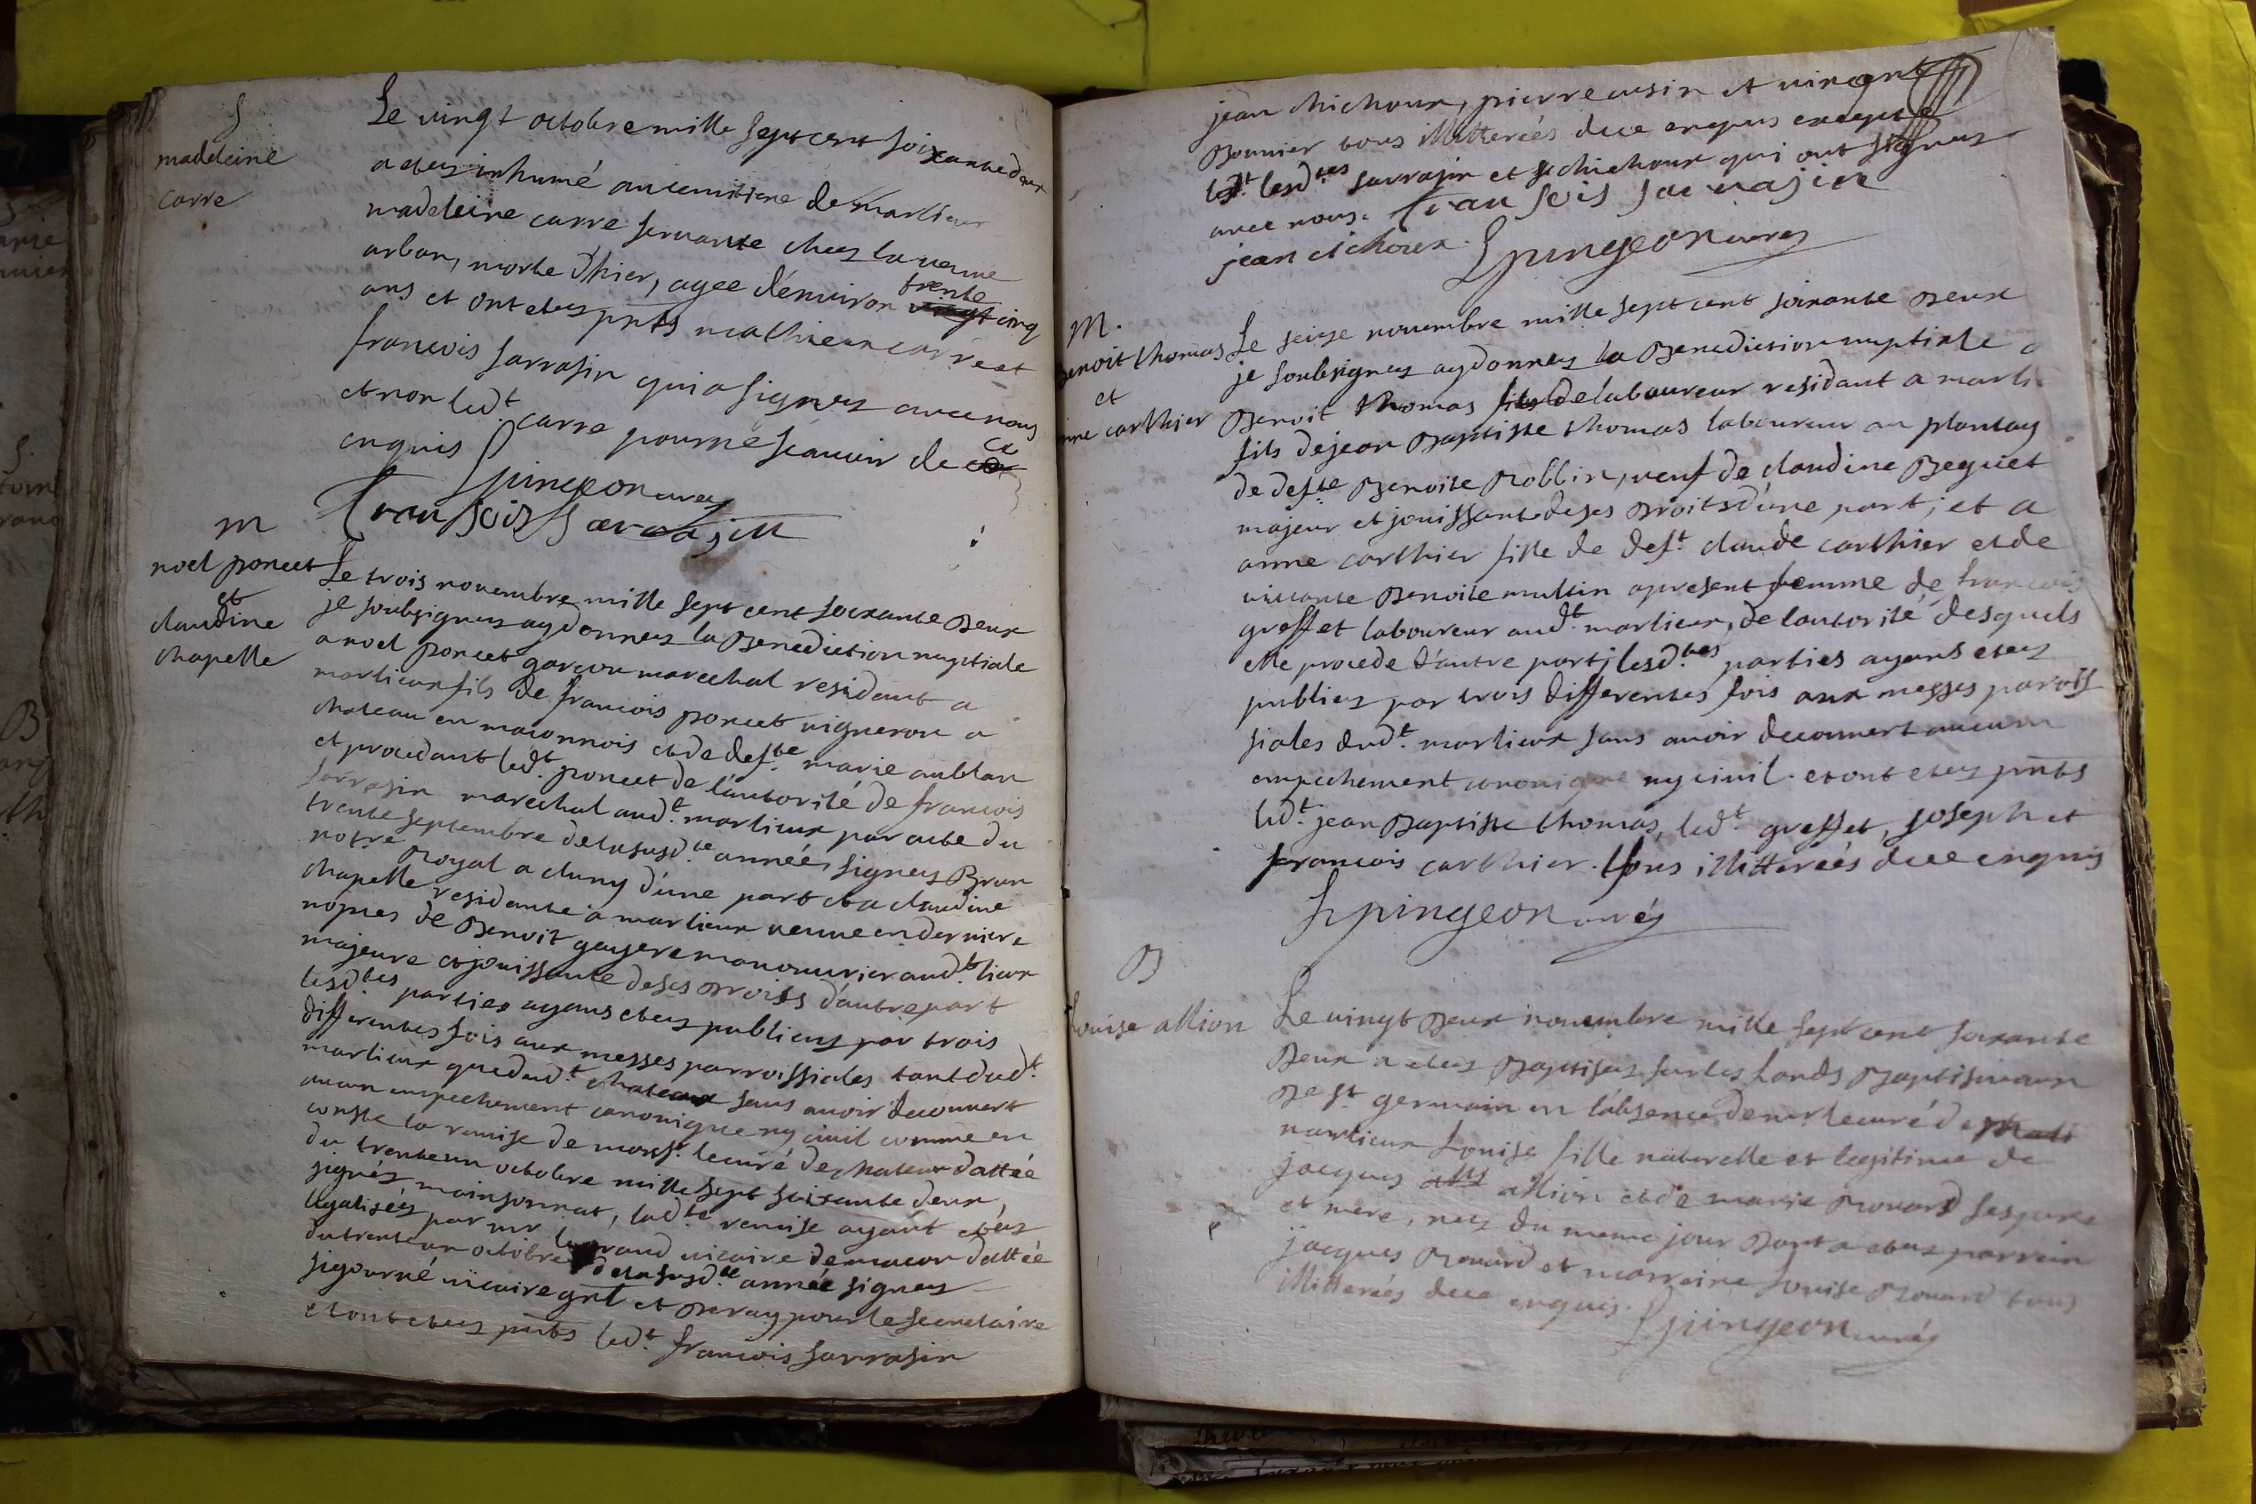 S
madeleine
carre
Le vingt octobre mille sept cent soixante deux
a etez inhumé au cemitiere de marlieux
madeleine carre servante chez la veuve
arban, morte d'hier, agee d'environ trente cinq
ans et ont etez pnts mathieu carre et
francois sarrasin qui a signez avec nous
et non ledt carre pour ne scavoir de ce
enquis Spingeon curez
Fran sois Saravasin
m
noel poncet
et
claudine
chapelle
Le trois novembre mille sept cent soixante deux
je soubsignez ay donnez la Benediction nuptiale
a noel poncet garcon marechal residant a
marlieux fils de francois poncet vigneron a
chateau en maconnois et de defte marie aublan
et procedant ledt poncet de l'autorité de francois
sarrasin marechal audt marlieux par acte du
trente septembre de la susdte année, signez Brun
notre Royal a cluny d'une part et a claudine
chapelle residante a marlieux veuve en derniere
nopces de Benoit gayere manouvrier audt lieux
majeure et jouissante de ses Droits d'autre part
lesdtes parties ayans etez publiez par trois
differentes fois aux messes parroissiales tant dudt
marlieux que dudt chateaux sans avoir decouvert
aucun empechement canonique ny civil comme en
conste la remise de monsr le curé de chateau dattée
du trente un octobre mille sept soixante deux
signés moinsonnat, ladte remise ayant etés
legalisés par mr le grand vicaire de macon dattée
du trente un octobre de la susdte année signez
sigourné vicaire gnl et Deray pour le secretaire
et ont etez pnts ledt francois sarrasin
jean chichoux, pierre cusin et vincent
Bonnier tous illitterées de ce enquis excepté
ledt lesdtes sarrasin et chichoux qui ont signez
avec nous. Fran sois Saravasin
jean chichoux. Spingeon curez
M.
Benoit thomas
et
anne carthier
Le seize novembre mille sept cent soixante Deux
je soubsignez ay donnez la Benediction nuptiale a
Benoit thomas fils de laboureur residant a marli
fils de jean Baptiste thomas laboureur au plantay
de defte Benoite Robbin, veuf de claudine Beguet
majeur et jouissant de ses Droits d'une part; et a
anne carthier fille de deft claude carthier et de
vivante Benoite multin apresent femme de francois
greffet laboureur audt marlieux, de l'autorité desquels
elle procede d'autre part; lesdtes parties ayans etez
publiez par trois differentes fois aux messes paroiss
siales dudt marlieux sans avoir decouvert aucun
empechement canonique ny civil. et ont etez pnts
ledt jean Baptiste thomas, ledt greffet, joseph et
francois carthier. tous illitterées de ce enquis
Spingeon curéz
B
Louise allion
Le vingt Deux novembre mille sept cent soixante
Deux a etez Baptisez sur les fonds Baptismaux
De st germain en l'absence de mr le curé de
marlieux Louise fille naturelle et legitime de
jacques allion et de marie Rouard ses pere
et mère, nez du meme jour Dont a etez parrein
jacques Rouard et marreine Louise Rouard tous
illitterées de ce enquis. Spingeon curéz